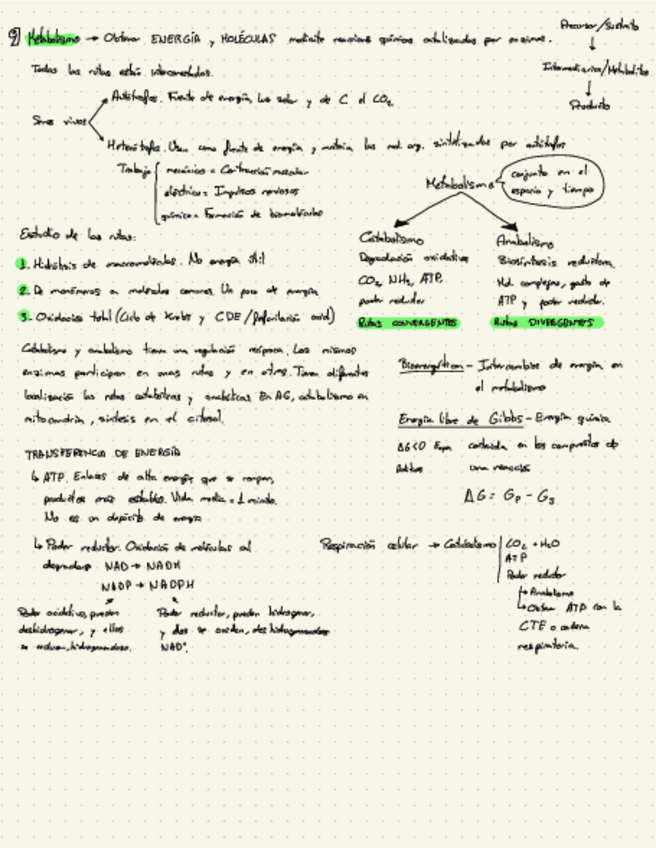 9) Metabolismo → Obtener ENERGÍA y MOLÉCULAS mediante reacciones químicas catalizadas por enzimas.
Precursor/Sustrato
↓
Intermediarios/Metabolitos
↓
Producto
Todas las rutas están interconectadas.
Seres vivos
Autótrofos. Fuente de energía, luz solar y de C el CO2
Heterótrofos. Usan como fuente de energía y materia las mol. org. sintetizadas por autótrofos
Trabajo
mecánico = Contracción muscular
eléctrico = Impulsos nerviosos
químico = Formación de biomoléculas
Metabolismo
conjunto en el
espacio y tiempo
Catabolismo
Degradación oxidativa
CO2, NH3, ATP.
poder reductor
Rutas CONVERGENTES
Anabolismo
Biosíntesis reductora
Mol. complejas, gasto de
ATP y poder reductor.
Rutas DIVERGENTES
Estudio de las rutas:
1. Hidrólisis de macromoléculas. No energía útil
2. De monómeros a moléculas comunes. Un poco de energía
3. Oxidación total (Ciclo de Krebs y CDE/
Catabolismo y anabolismo tienen una regulación recíproca. Las mismas
enzimas participan en unas rutas y en otras. Tienen diferentes
localización las rutas catabólicas y anabólicas. En AG, catabolismo en
mitocondria, síntesis en el citosol.
Bioenergética - Intercambios de energía en
el metabolismo
Energía libre de Gibbs - Energía química
contenida en los compuestos de
una reacción
ΔG<0
ΔG = Gp - Gs
TRANSFERENCIA DE ENERGÍA
↳ ATP. Enlaces de alta energía que se rompen,
productos más estables. Vida media = 1 minuto.
No es un depósito de energía
↳ Poder reductor. Oxidación de moléculas al
degradarse NAD → NADH
NADP → NADPH
Poder oxidativo, pueden
deshidrogenar, y ellos
se reducen, hidrogenándose.
Poder reductor, pueden hidrogenar,
y ellos se oxidan, deshidrogenándose
NAD+.
Respiración celular → Catabolismo
CO2 + H2O
ATP
Poder reductor
↳ Anabolismo
↳ Obtener ATP con la
CTE o cadena
respiratoria.